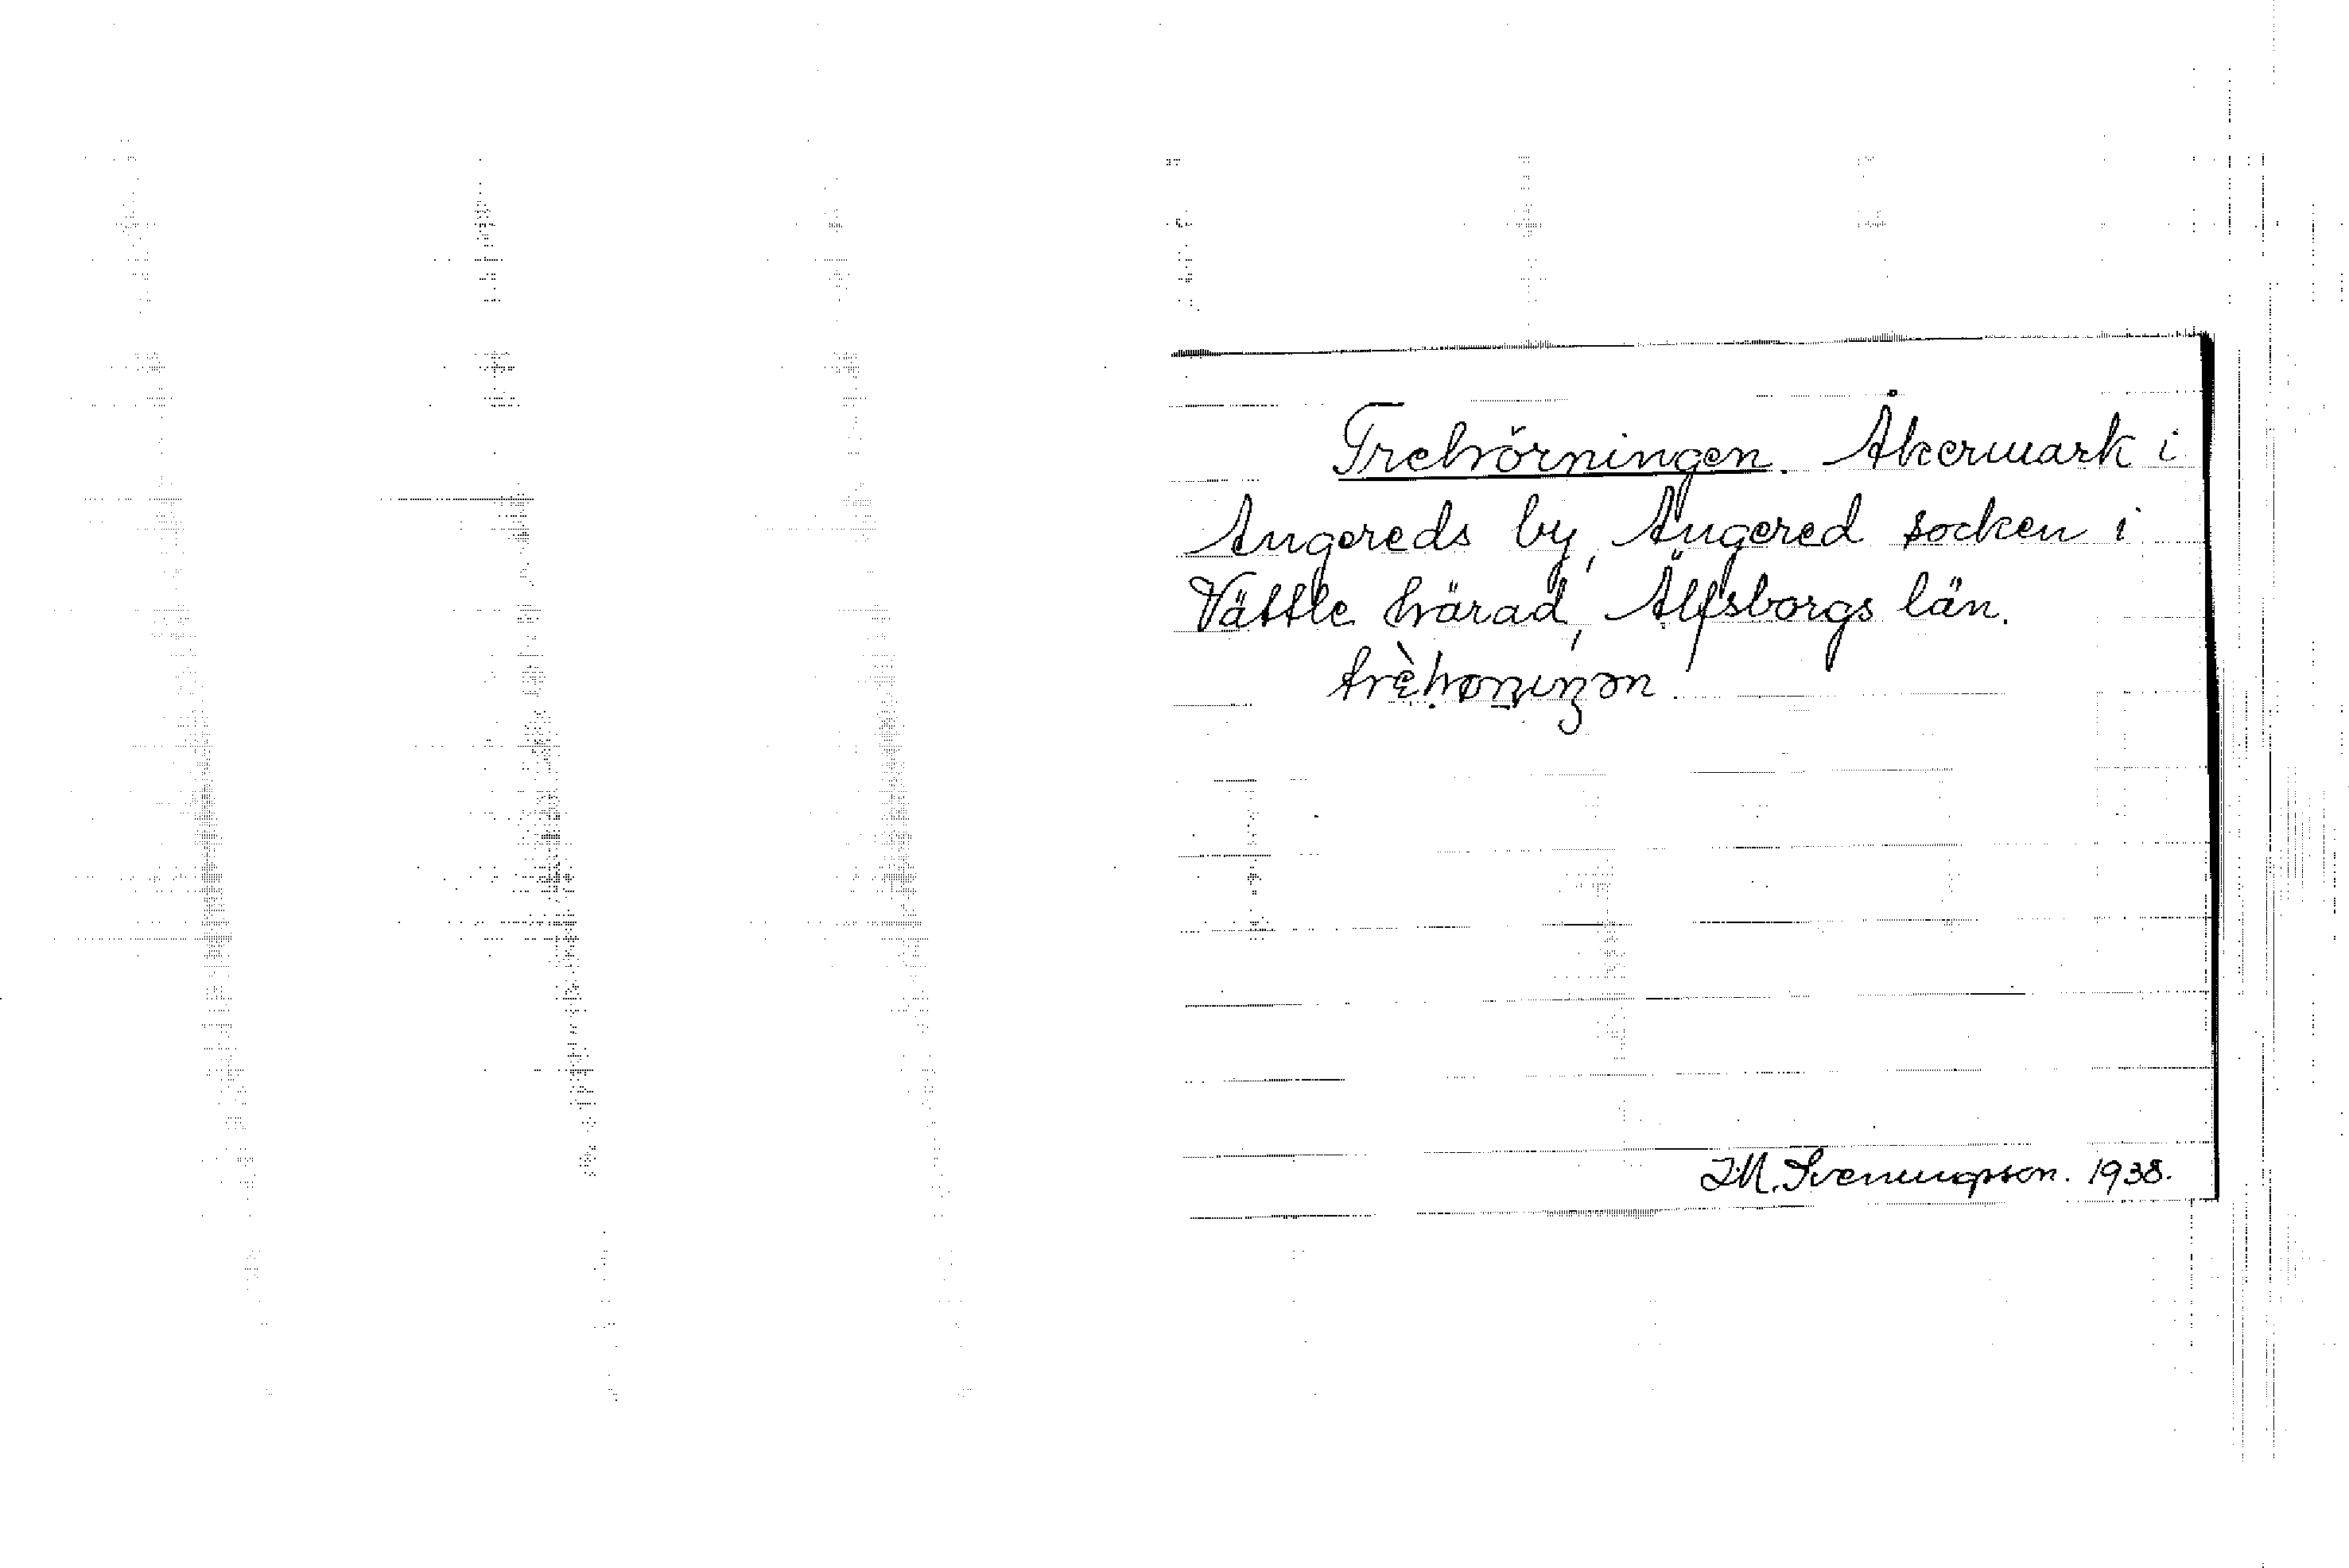 Trehörningen. Åkermark i
Angereds by, Angered socken i
Vättle härad, Älfsborgs län.
J.M. Svenungsson. 1938.